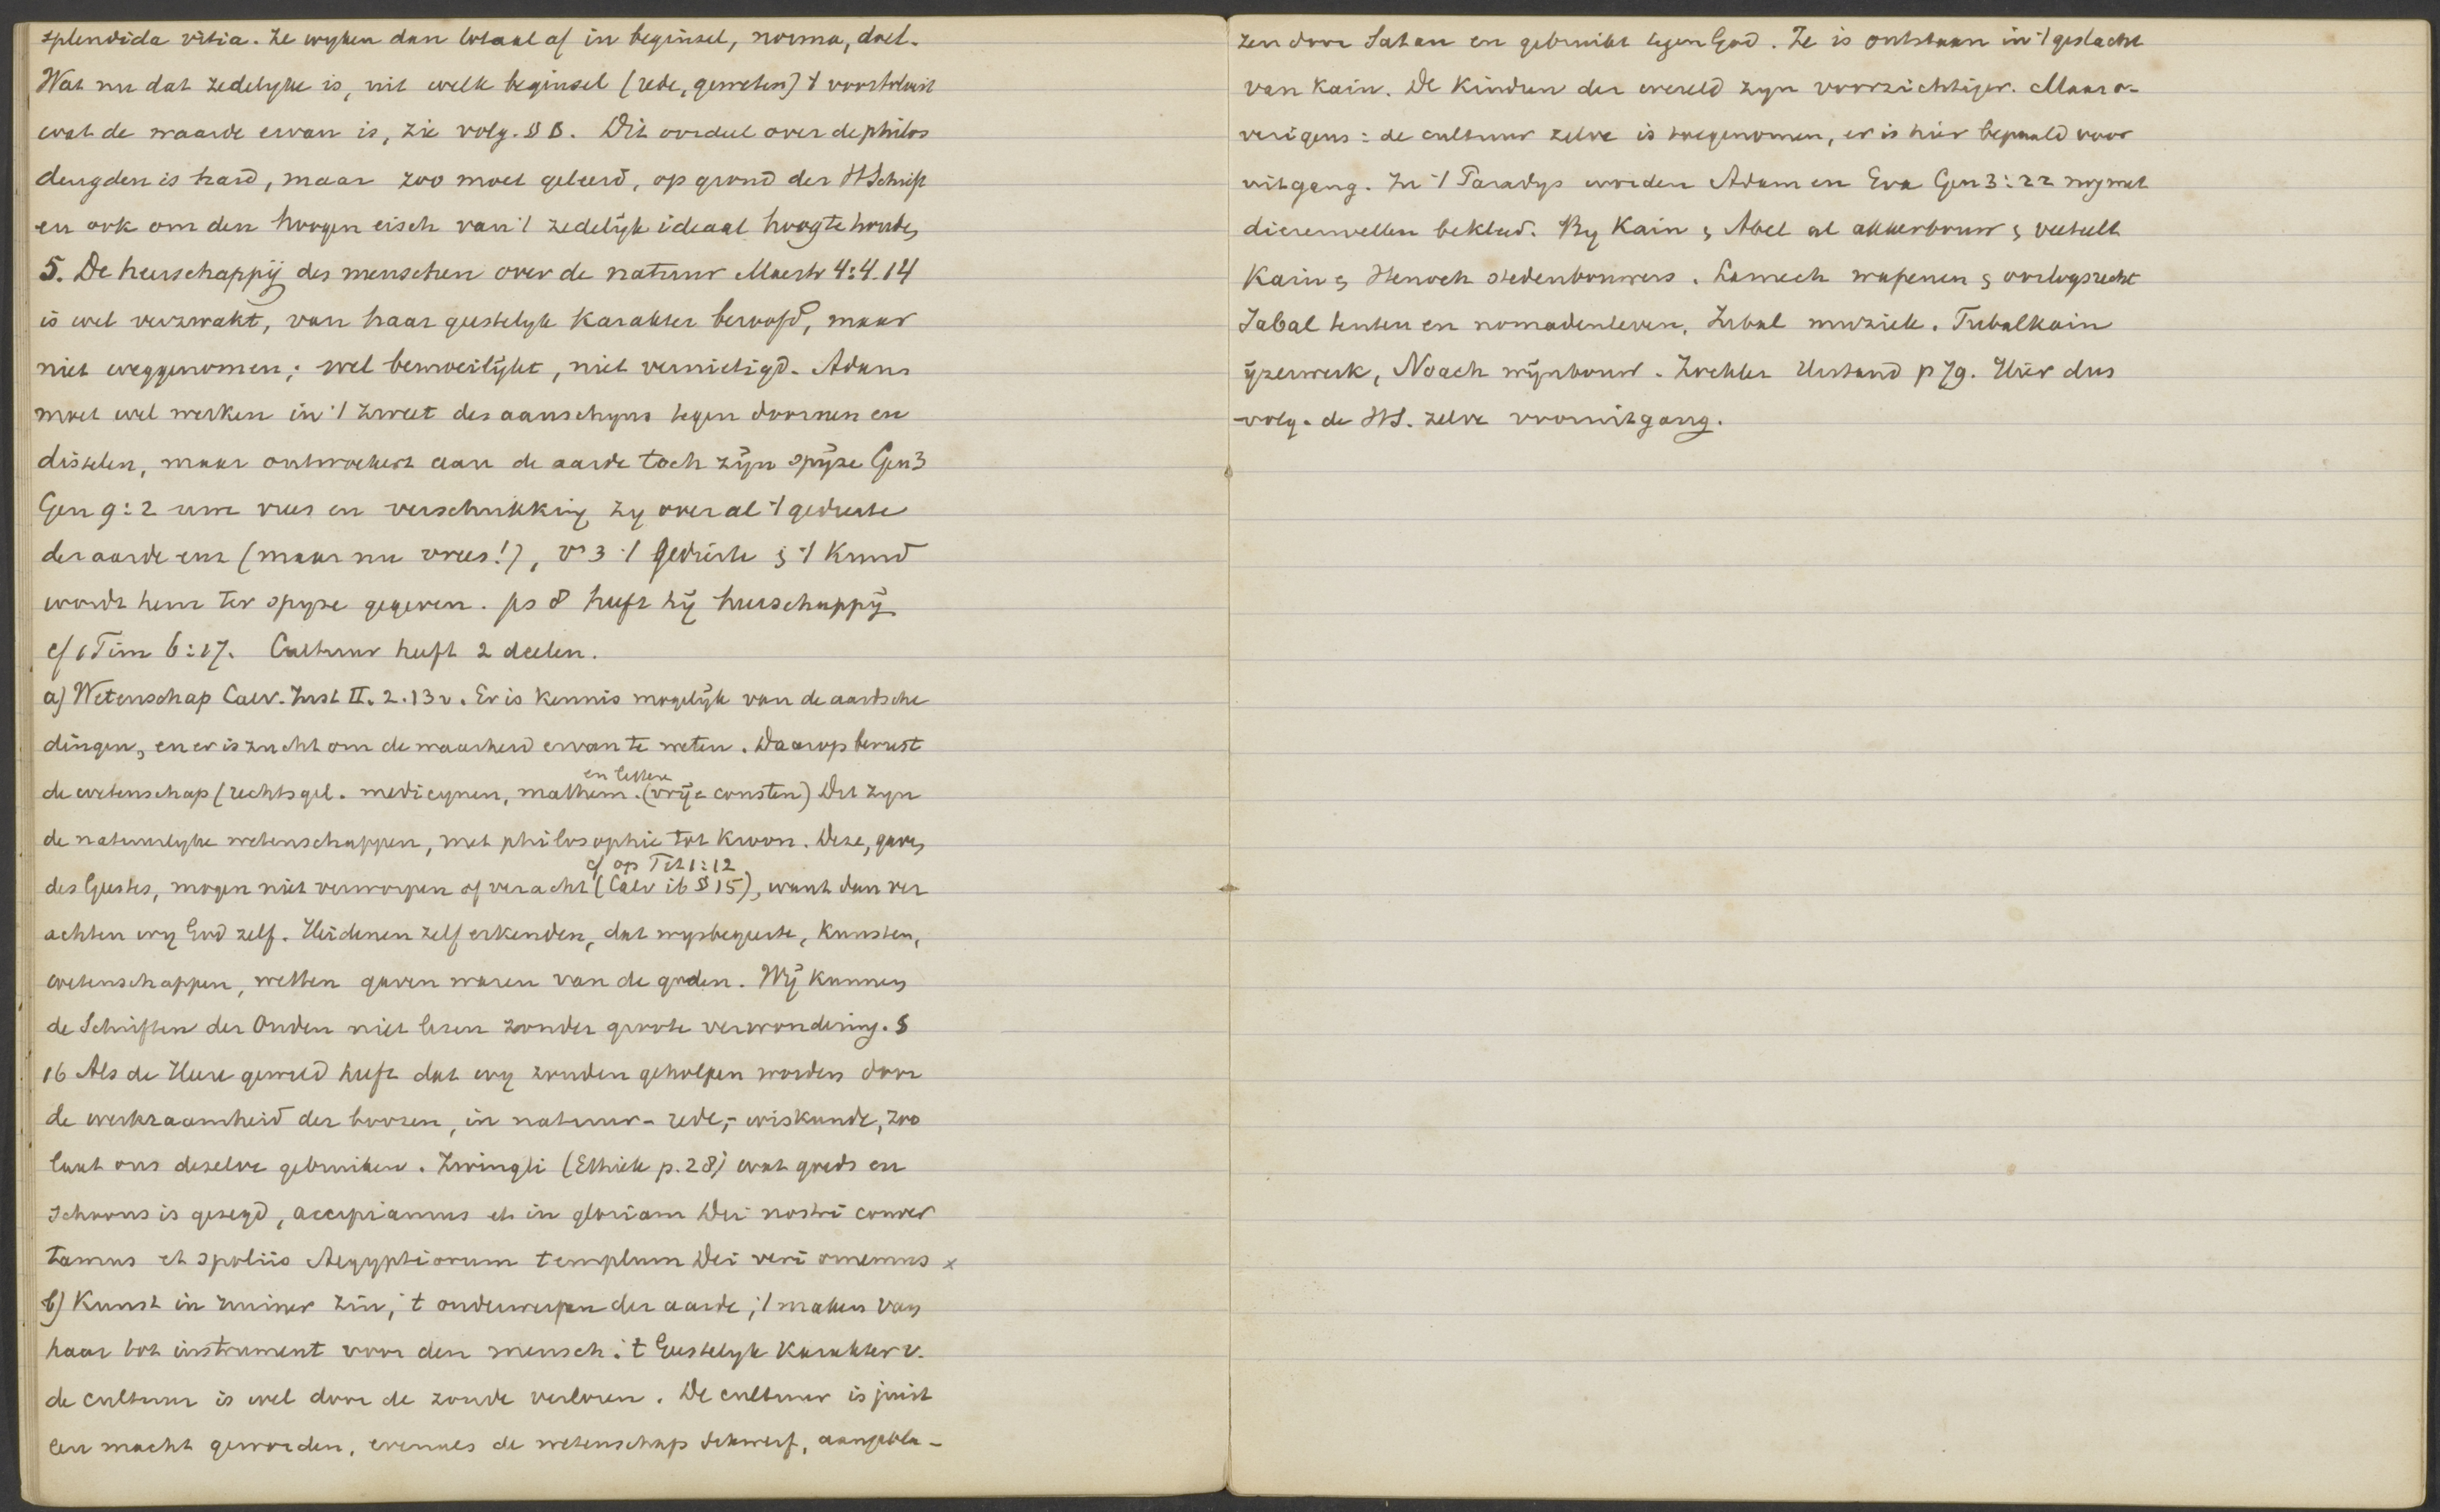 splendida vitia. Ze wyken dan totaal af in beginsel, norma, doel.
Wat nu dat zedelyke is, uit welk beginsel (rede, geweten) 't voortvloeit
wat de waarde ervan is, zie volg. § B. Dit oordeel over de philos
deugden is hard, maar zoo moet geleerd, op grond der HSchrift
en ook om den hoogen eisch van 't zedelijk ideaal hoogtehouden
5. De heerschappij des menschen over de natuur Maestr 4:4.14
is wel verzwakt, van haar geestelyk karakter beroofd, maar
niet weggenomen; wel bemoeilijkt, niet vernietigd. Adam
moet wel werken in 't zweet des aanschyns tegen doornen en
distelen, maar ontwoekert aan de aarde toch zijn spijze Gen 3
Gen 9:2 uwe vrees en verschrikking zy over al 't gedierte
der aarde enz (maar nu vrees!), vs 3 't gedierte & 't kruid
wordt hem ter spyze gegeven. ps 8 heeft hij heerschappij
cf 1 Tim 6:17. Cultuur heeft 2 deelen.
a) Wetenschap Calv. Inst II. 2.13v. Er is kennis mogelijk van de aardsche
dingen, en er is zucht om de waarheid ervan te weten. Daarop berust
en lettere
de wetenschap (rechtsgel. medicynen, mathem. (vrije consten) Dit zyn
de natuurlyke wetenschappen, met philosophie tot kroon. Deze, gaven
cf op Tit 1:12
des Geestes, mogen niet verworpen of veracht (Calv ib § 15), want dan ver
achten wy God zelf. Heidenen zelf erkenden, dat wysbegeerte, kunsten,
wetenschappen, wetten gaven waren van de goden. Wij kunnen
de Schriften der Ouden niet lezen zonder groote verwondering. §
16 Als de Heere gewild heeft dat wy zouden geholpen worden door
de werkzaamheid der boozen, in natuur- rede,- wiskunde, zoo
laat ons dezelve gebruiken. Zwingli (Ethiek p. 28) wat goeds en
schoons is gezegd, accipiamus et in gloriam Dei nostri conver
tamus et spoliis Aegyptiorum templum Dei veri ornemus x
b) Kunst in ruimer zin, 't onderwerpen der aarde, 't maken van
haar tot instrument voor den mensch. 't Geestelyk karakter v.
de cultuur is wel door de zonde verloren. De cultuur is juist
een macht geworden, evenals de wetenschap dikwerf, aangebla-
zen door Satan en gebruikt tegen God. Ze is ontstaan in 't geslacht
van Kain. De kindren der wereld zyn voorzichtiger. Maar o-
verigens: de cultuur zelve is toegenomen, er is hier bepaald voor
uitgang. In 't Paradys worden Adam en Eva Gen 3:22 nog met
dierenvellen bekleed. By Kain & Abel al akkerbouw & veeteelt
Kain & Henoch stedenbouwers. Lamech wapenen & oorlogsrecht
Jabal tenten en nomadenleven, Jubal muziek. Tubalkain
ijzerwerk, Noach wijnbouw. Zockler Urstand p 79. Hier dus
volg. de HS. zelve vooruitgang.